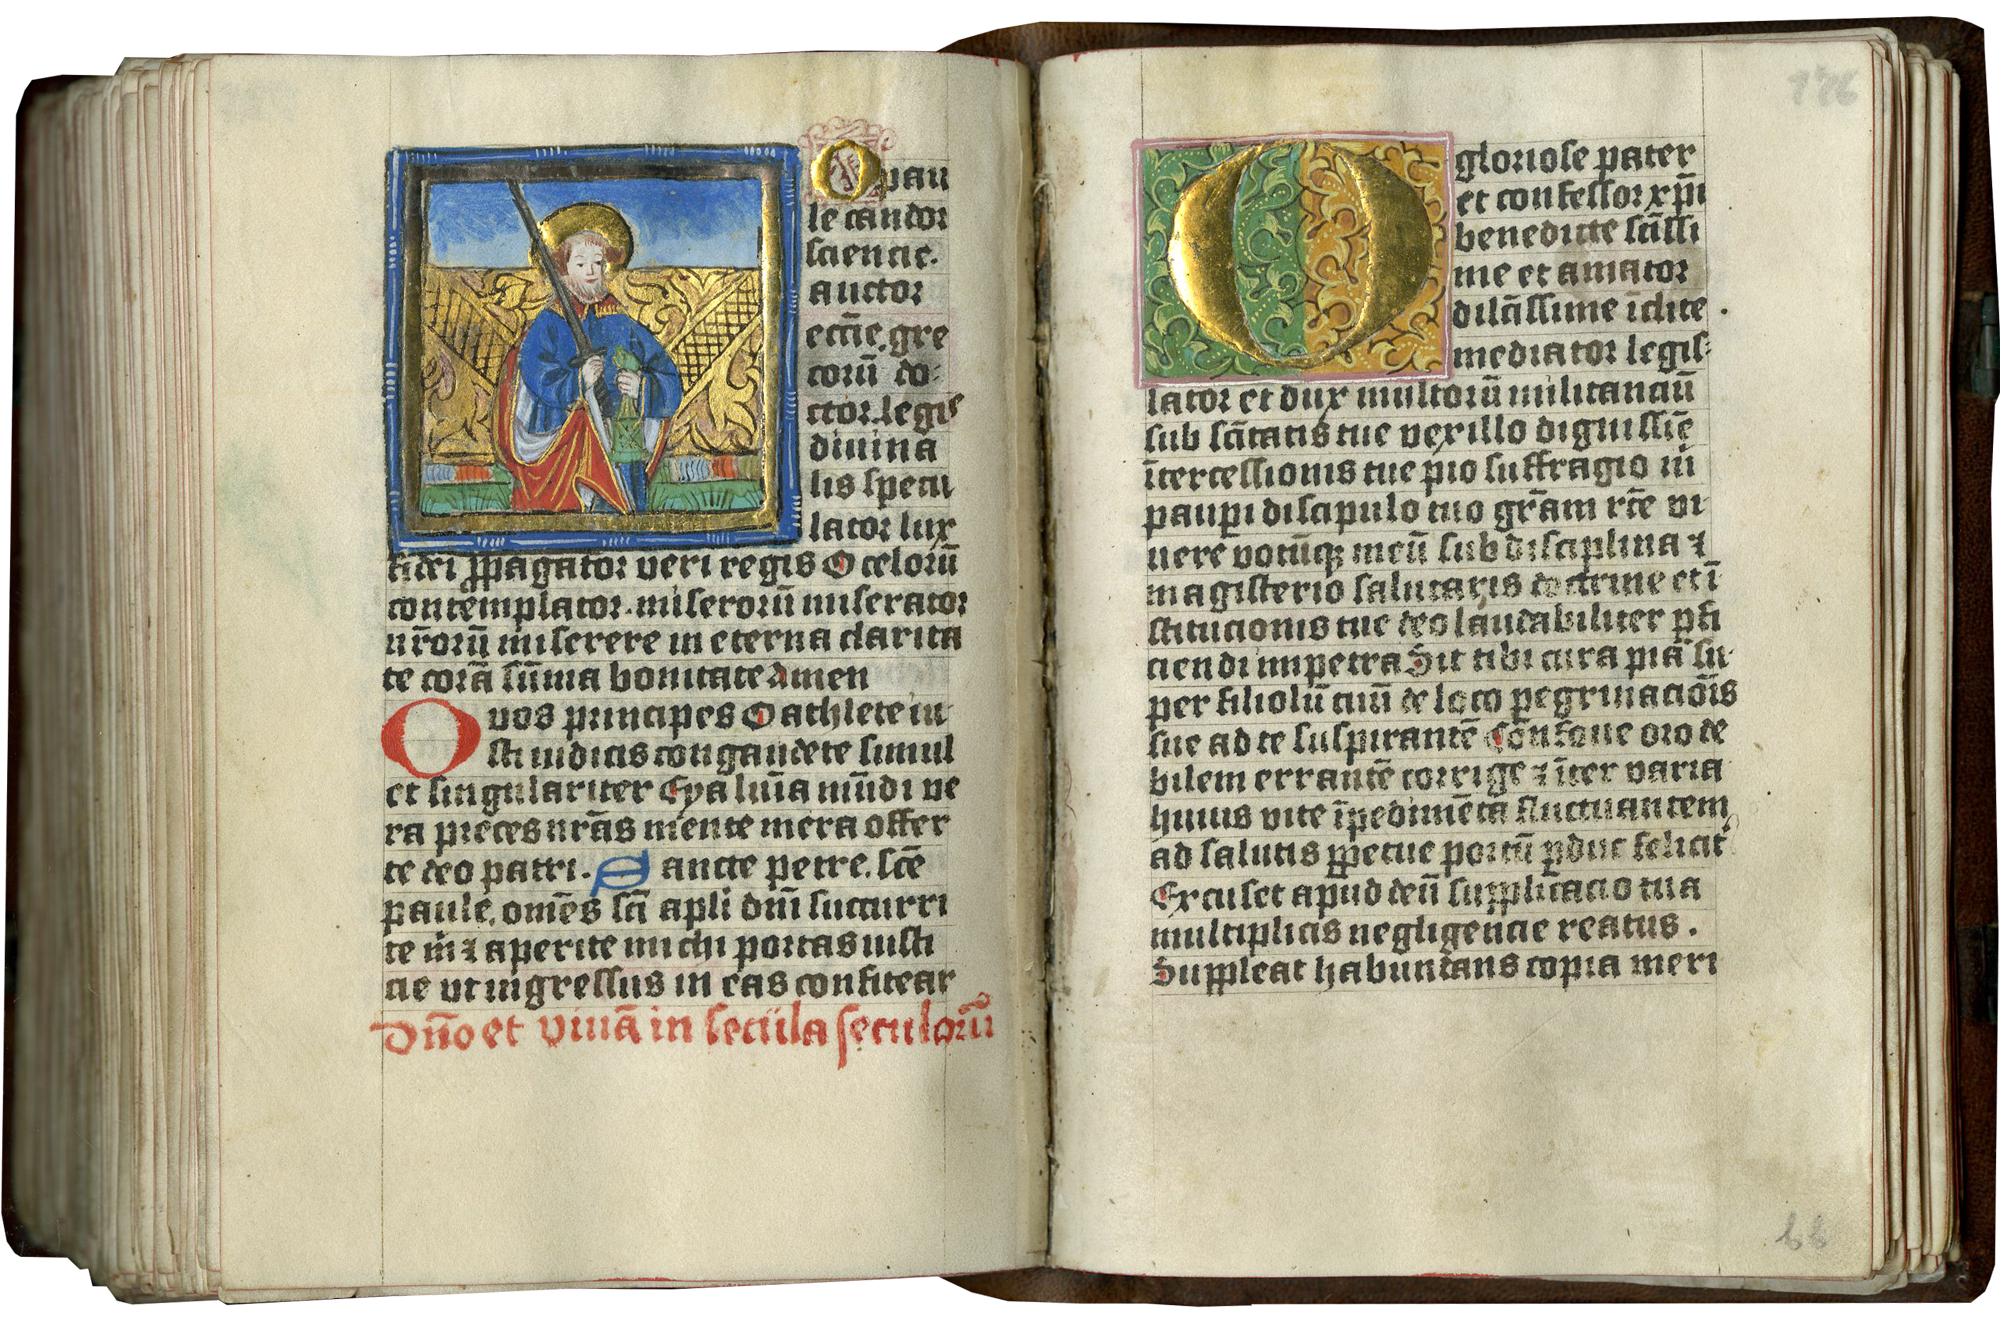 O pau
le cādor
sciencie.
auctor
eccīe. gre
corū do-
ctor. legis
diuina
lis specu
lator lux
fidei ꝓpagator veri regis O celorū
contemplator. miserorū miserator
nr̄orū miserere in eterna clarita
te corā sūma bonitate Amen
O vos principes O athlete iu-
sti iudicis congaudete simul
et singulariter Eya lumīa mūdi ve
ra preces nr̄as mente mera offer
te deo patri. Sancte petre. scē
paule. om̄es scī apli dn̄i succurri
te m̄ ⁊ aperite michi portas iusti
cie vt ingressus in eas confitear
Dn̄o et viuā in secula seculorū
176
O gloriose pater
et confessor xp̄i
benedicte sc̄issi
me et amator
dilc̄issime īclite
mediator legis-
lator et dux multorū militanciū
sub sc̄itatis tue vexillo dignissiē
ītercessionis tue pio suffragio m̄
pauꝑi discipulo tuo gr̄am rc̄te vi
uere votūqꝫ meū sub disciplina ⁊
magisterio salutaris doctrine et ī
stitucionis tue deo laudabiliter ꝑfi
ciendi impetra Sit tibi cura pia su-
per filiolū tuū de loco pegrinaciōis
sue ad te suspirantē Confoue oro de
bilem errantē corrige ⁊ īter varia
huius vite īpedimēta fluctuantem
ad salutis ꝑpetue portū ꝑduc felicit̄
Excuset apud deū supplicacio tua
multiplicis negligencie reatus.
Suppleat habundans copia meri